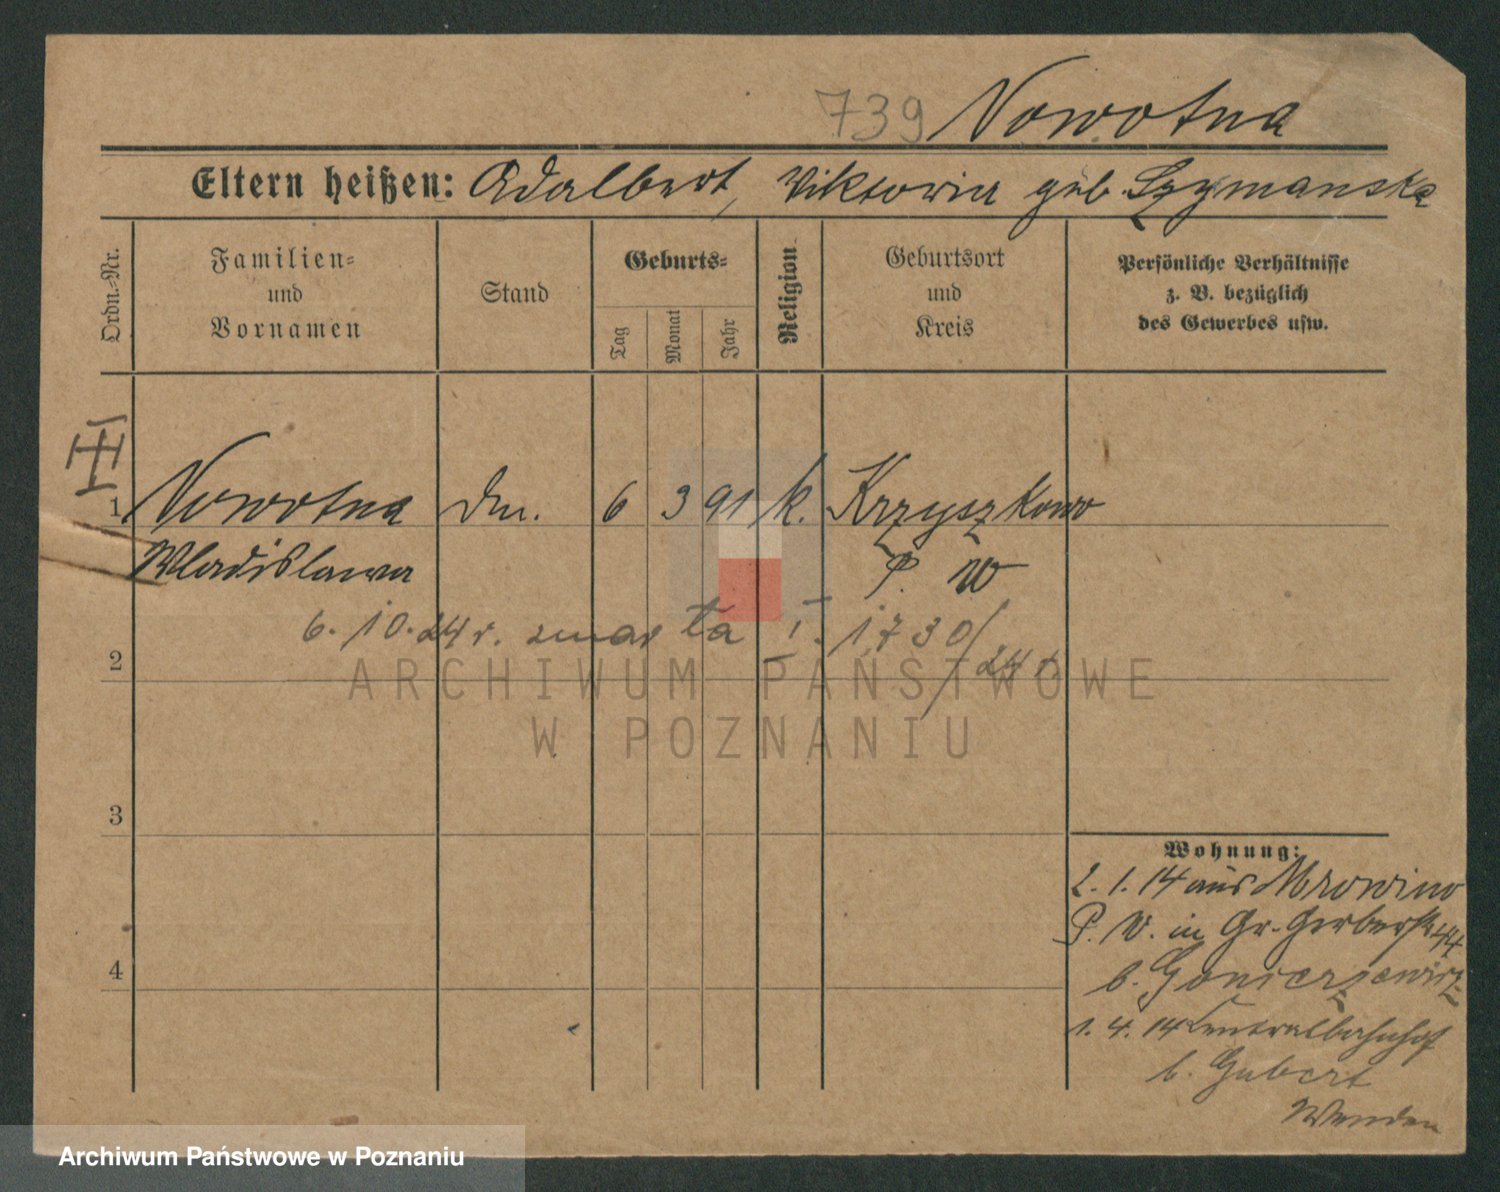 739 Nowotna
Eltern heißen: Adalbert, Viktoria geb. Szymanska
Ordn.-Nr.
Familien-
und
Vornamen
Stand
Geburts-
Tag
Monat
Jahr
Religion
Geburtsort
und
Kreis
Persönliche Verhältnisse
z. B. bezüglich
des Gewerbes usw.
III
1 Nowotna 6 3 91 k. Krzyszkowo
Wladislawa P. W
6. 10. 24 r. zmarła I. 1730/24
2
ARCHIWUM PAŃSTWOWE
W POZNANIU
3
Wohnung:
2. 1. 14 aus Mrowino
P. W. in Gr. Gerberstr 44
4
b. Gonierzewicz
1. 4. 14 Centralbahnhof
b. Gubert
Archiwum Państwowe w Poznaniu